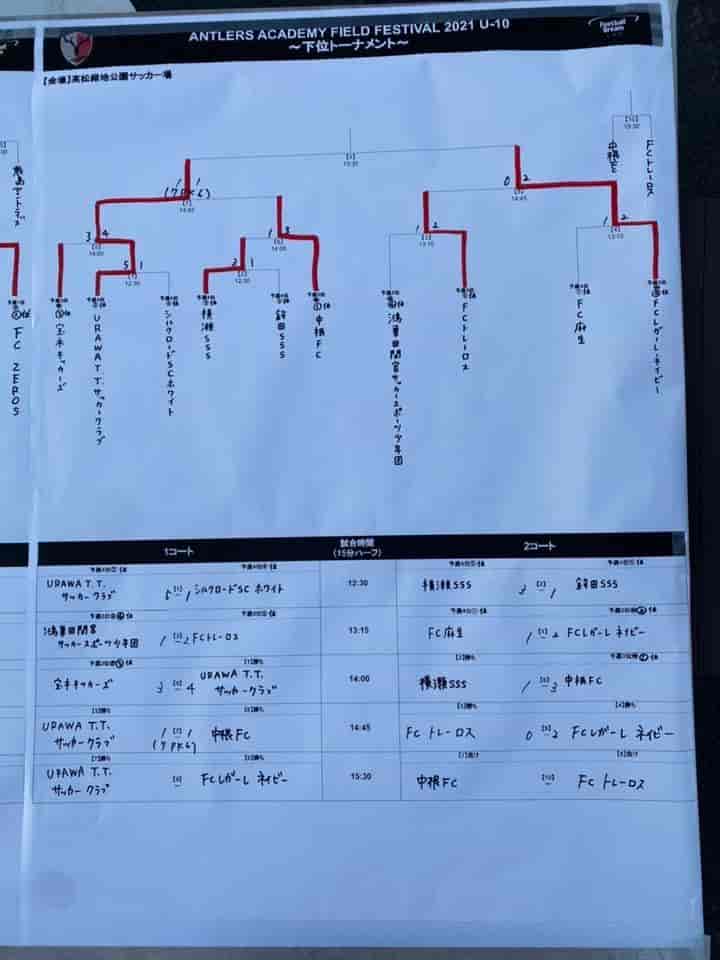 ANTLERS ACADEMY FIELD FESTIVAL 2021 U-10
～下位トーナメント～
Football Dream
【会場】高松緑地公園サッカー場
[10]
15:30
中根FC
FCトレーロス
[9]
15:30
1 1
(7 PK 6)
[7]
14:45
0 2
[8]
14:45
3 4
[5]
14:00
1 3
[6]
14:00
1 2
[3]
13:15
1 2
[4]
13:15
5 1
[1]
12:30
3 1
[2]
12:30
宝木キッカーズ
URAWA T.T.サッカークラブ
シルクロードSCホワイト
横瀬SSS
鉾田SSS
中根FC
FCトレーロス
FC麻生
FCレガーレ ネイビー
FC ZEROS
1コート
試合時間
(15分ハーフ)
2コート
URAWA T.T.
サッカークラブ
5 [1] 1 シルクロードSC ホワイト
12:30
横瀬SSS 3 [2] 1 鉾田SSS
サッカースポーツ少年団 1 [3] 2 FCトレーロス
13:15
FC麻生 1 [4] 2 FCレガーレ ネイビー
[1]勝ち
宝木キッカーズ 3 [5] 4 URAWA T.T.
サッカークラブ
14:00
[2]勝ち
横瀬SSS 1 [6] 3 中根FC
[5]勝ち
[6]勝ち
URAWA T.T.
サッカークラブ 1 [7] 1 中根FC
(7 PK 6)
14:45
[3]勝ち
[4]勝ち
FC トレーロス 0 [8] 2 FCレガーレ ネイビー
[7]勝ち
[8]勝ち
URAWA T.T.
サッカークラブ [9] FCレガーレ ネイビー
15:30
[7]負け
[8]負け
中根FC [10] FC トレーロス